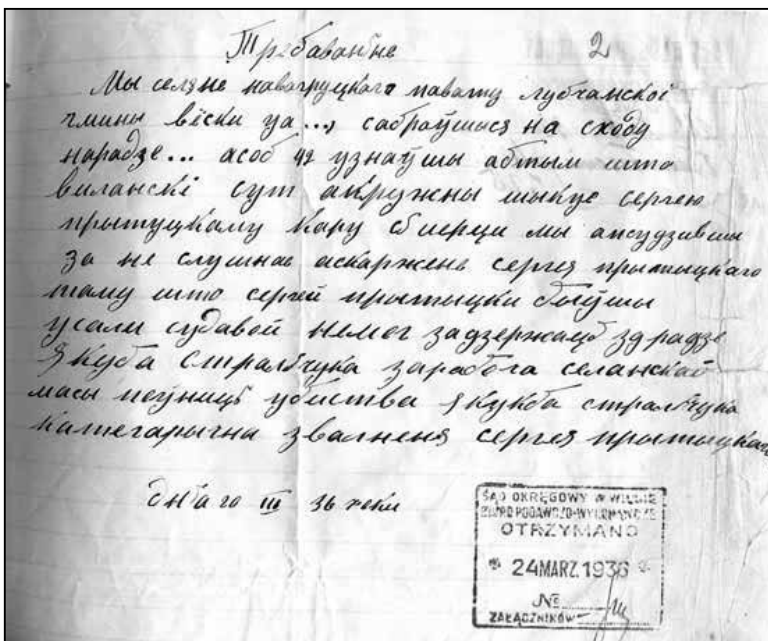 Требаваньне 2
Мы селяне навагруцкаго павату лубчанскоі
гмины вёски ца..., сабраўшыся на сходу
нарадзе... асоб 42 узнаўшы абтым што
виланскі сут акружны шыкуе сергею
прытуцкаму кару сьмерци мы
за не слушнае аскаржень сергея прытыцкаго
таму што сергей прытыцки быўшы
усали судавой немог задзержаць здрадзе
Якуба стральчука селянскай
масы убиства Якукба стральчука
категарычна звалненя сергея прытыцкаго
дньа 20 III 36 року
SĄD OKRĘGOWY W WILNIE
BIURO PODAWCZO-WYKONAWCZE
OTRZYMANO
* 24 MARZ. 1936 *
№
ZAŁĄCZNIKÓW